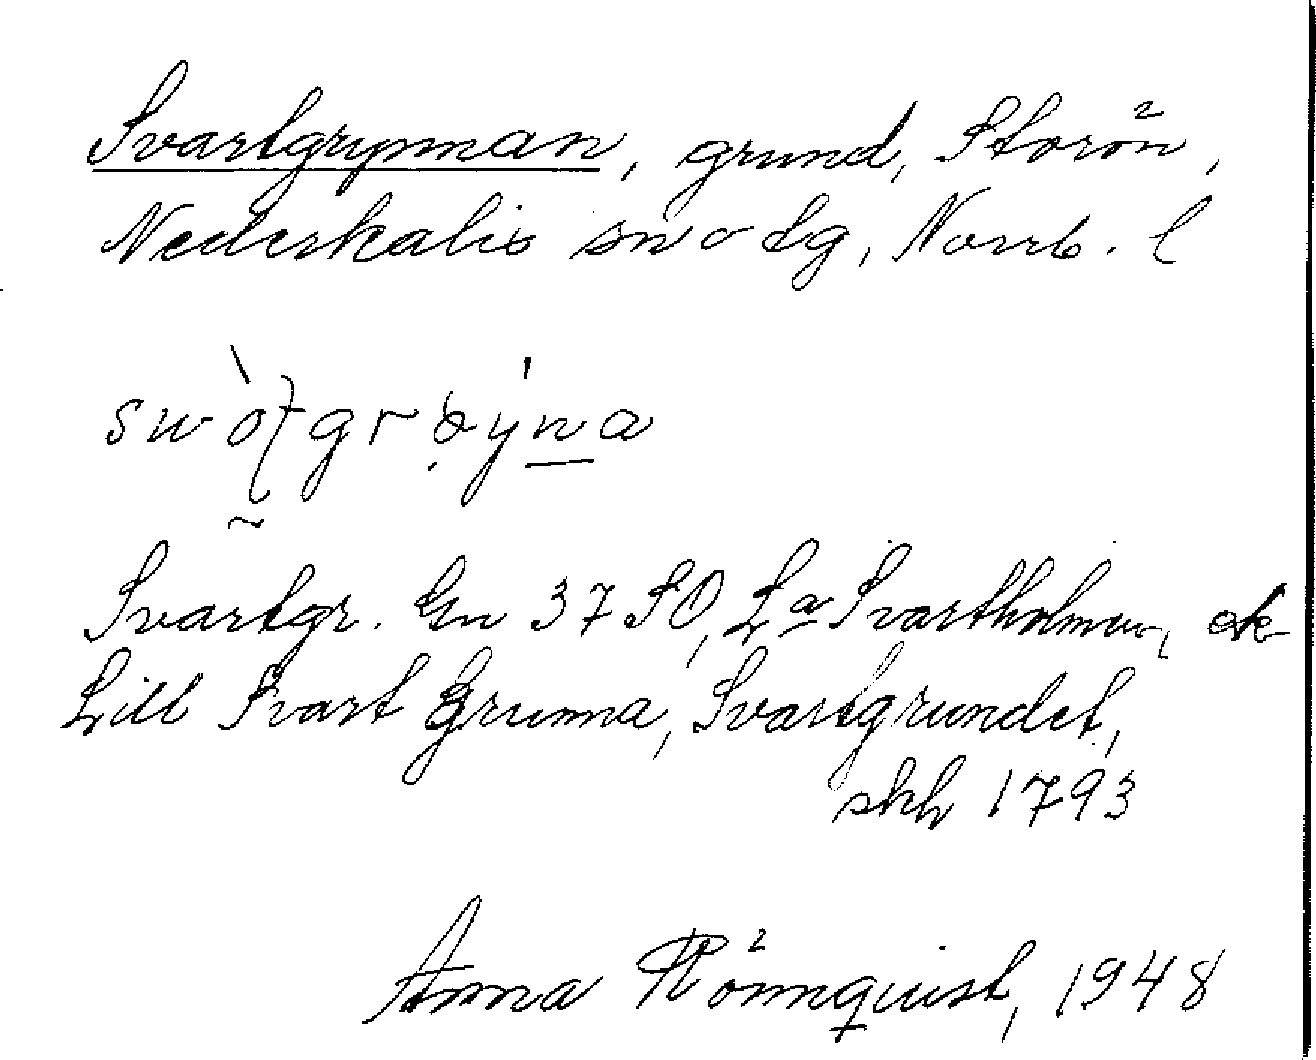 Svartgrynnan, grund, Storön,
Nederkalix sn o tg, Norrb. l
Svartgr. Gn 37 SO, La Svartholmen, ek
Lill Svart Grunna, Svartgrundet,
skh 1793
Anna Rönnquist, 1948